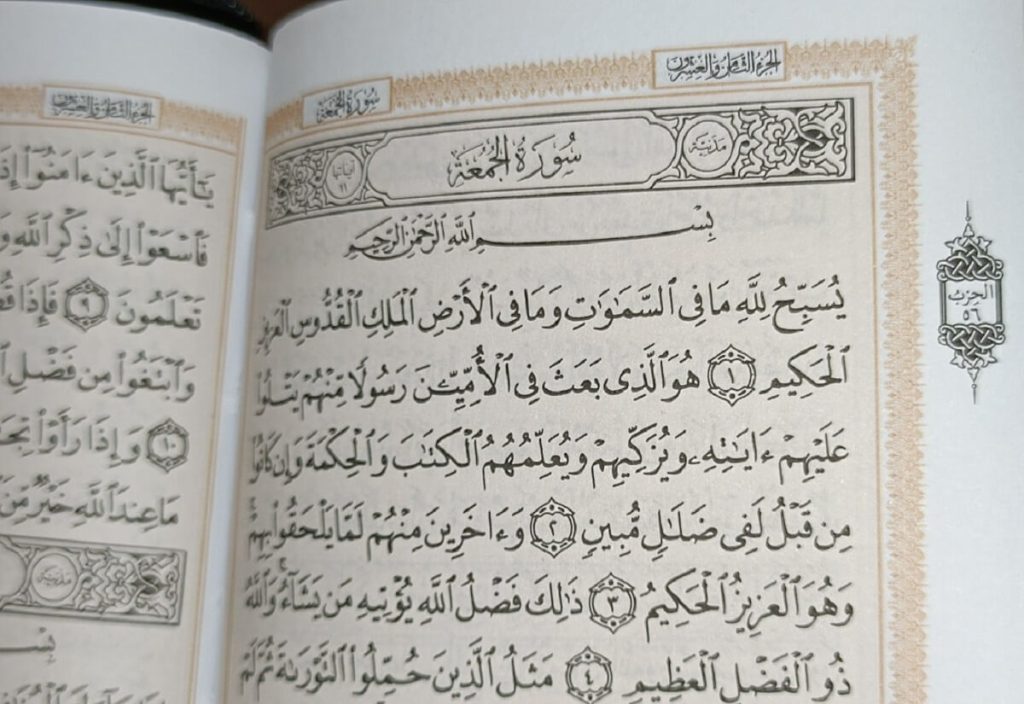 الجزء الثامن والعشرون
سورة الجمعة
مدنية
سُورَةُ الْجُمُعَةِ
آياتها ١١
بِسْمِ ٱللَّهِ ٱلرَّحْمَٰنِ ٱلرَّحِيمِ
يُسَبِّحُ لِلَّهِ مَا فِى ٱلسَّمَٰوَٰتِ وَمَا فِى ٱلْأَرْضِ ٱلْمَلِكِ ٱلْقُدُّوسِ ٱلْعَزِيزِ
ٱلْحَكِيمِ ١ هُوَ ٱلَّذِى بَعَثَ فِى ٱلْأُمِّيِّۦنَ رَسُولًا مِّنْهُمْ يَتْلُوا۟
عَلَيْهِمْ ءَايَٰتِهِۦ وَيُزَكِّيهِمْ وَيُعَلِّمُهُمُ ٱلْكِتَٰبَ وَٱلْحِكْمَةَ وَإِن كَانُوا۟
مِن قَبْلُ لَفِى ضَلَٰلٍ مُّبِينٍ ٢ وَءَاخَرِينَ مِنْهُمْ لَمَّا يَلْحَقُوا۟ بِهِمْ ۚ
وَهُوَ ٱلْعَزِيزُ ٱلْحَكِيمُ ٣ ذَٰلِكَ فَضْلُ ٱللَّهِ يُؤْتِيهِ مَن يَشَآءُ ۚ وَٱللَّهُ
ذُو ٱلْفَضْلِ ٱلْعَظِيمِ ٤ مَثَلُ ٱلَّذِينَ حُمِّلُوا۟ ٱلتَّوْرَىٰةَ ثُمَّ لَمْ
الحزب
٥٦
الجزء الثامن والعشرون
يَٰٓأَيُّهَا ٱلَّذِينَ ءَامَنُوٓا۟ إِذَا
فَٱسْعَوْا۟ إِلَىٰ ذِكْرِ ٱللَّهِ
تَعْلَمُونَ ٩ فَإِذَا
وَٱبْتَغُوا۟ مِن فَضْلِ
١٠ وَإِذَا رَأَوْا۟
مَا عِندَ ٱللَّهِ خَيْرٌ مِّنَ
مدنية